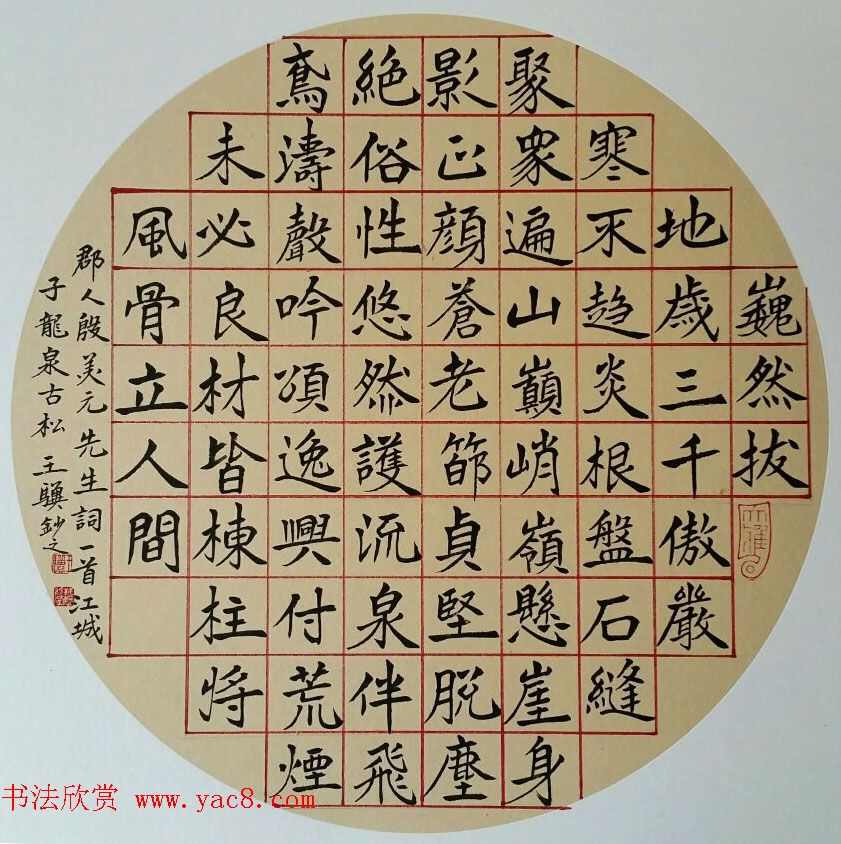 巍然拔
地歲三千傲嚴
寒不趋炎根盤石縫
聚眾遍山巔峭嶺懸崖身
影正顔蒼老節貞堅脱塵
絶俗性悠然護流泉伴飛
鳶濤聲吟頌逸興付荒煙
未必良材皆棟柱將
風骨立人間
郡人殷美元先生詞一首江城
子龍泉古松 王驥鈔之
书法欣赏 www.yac8.com